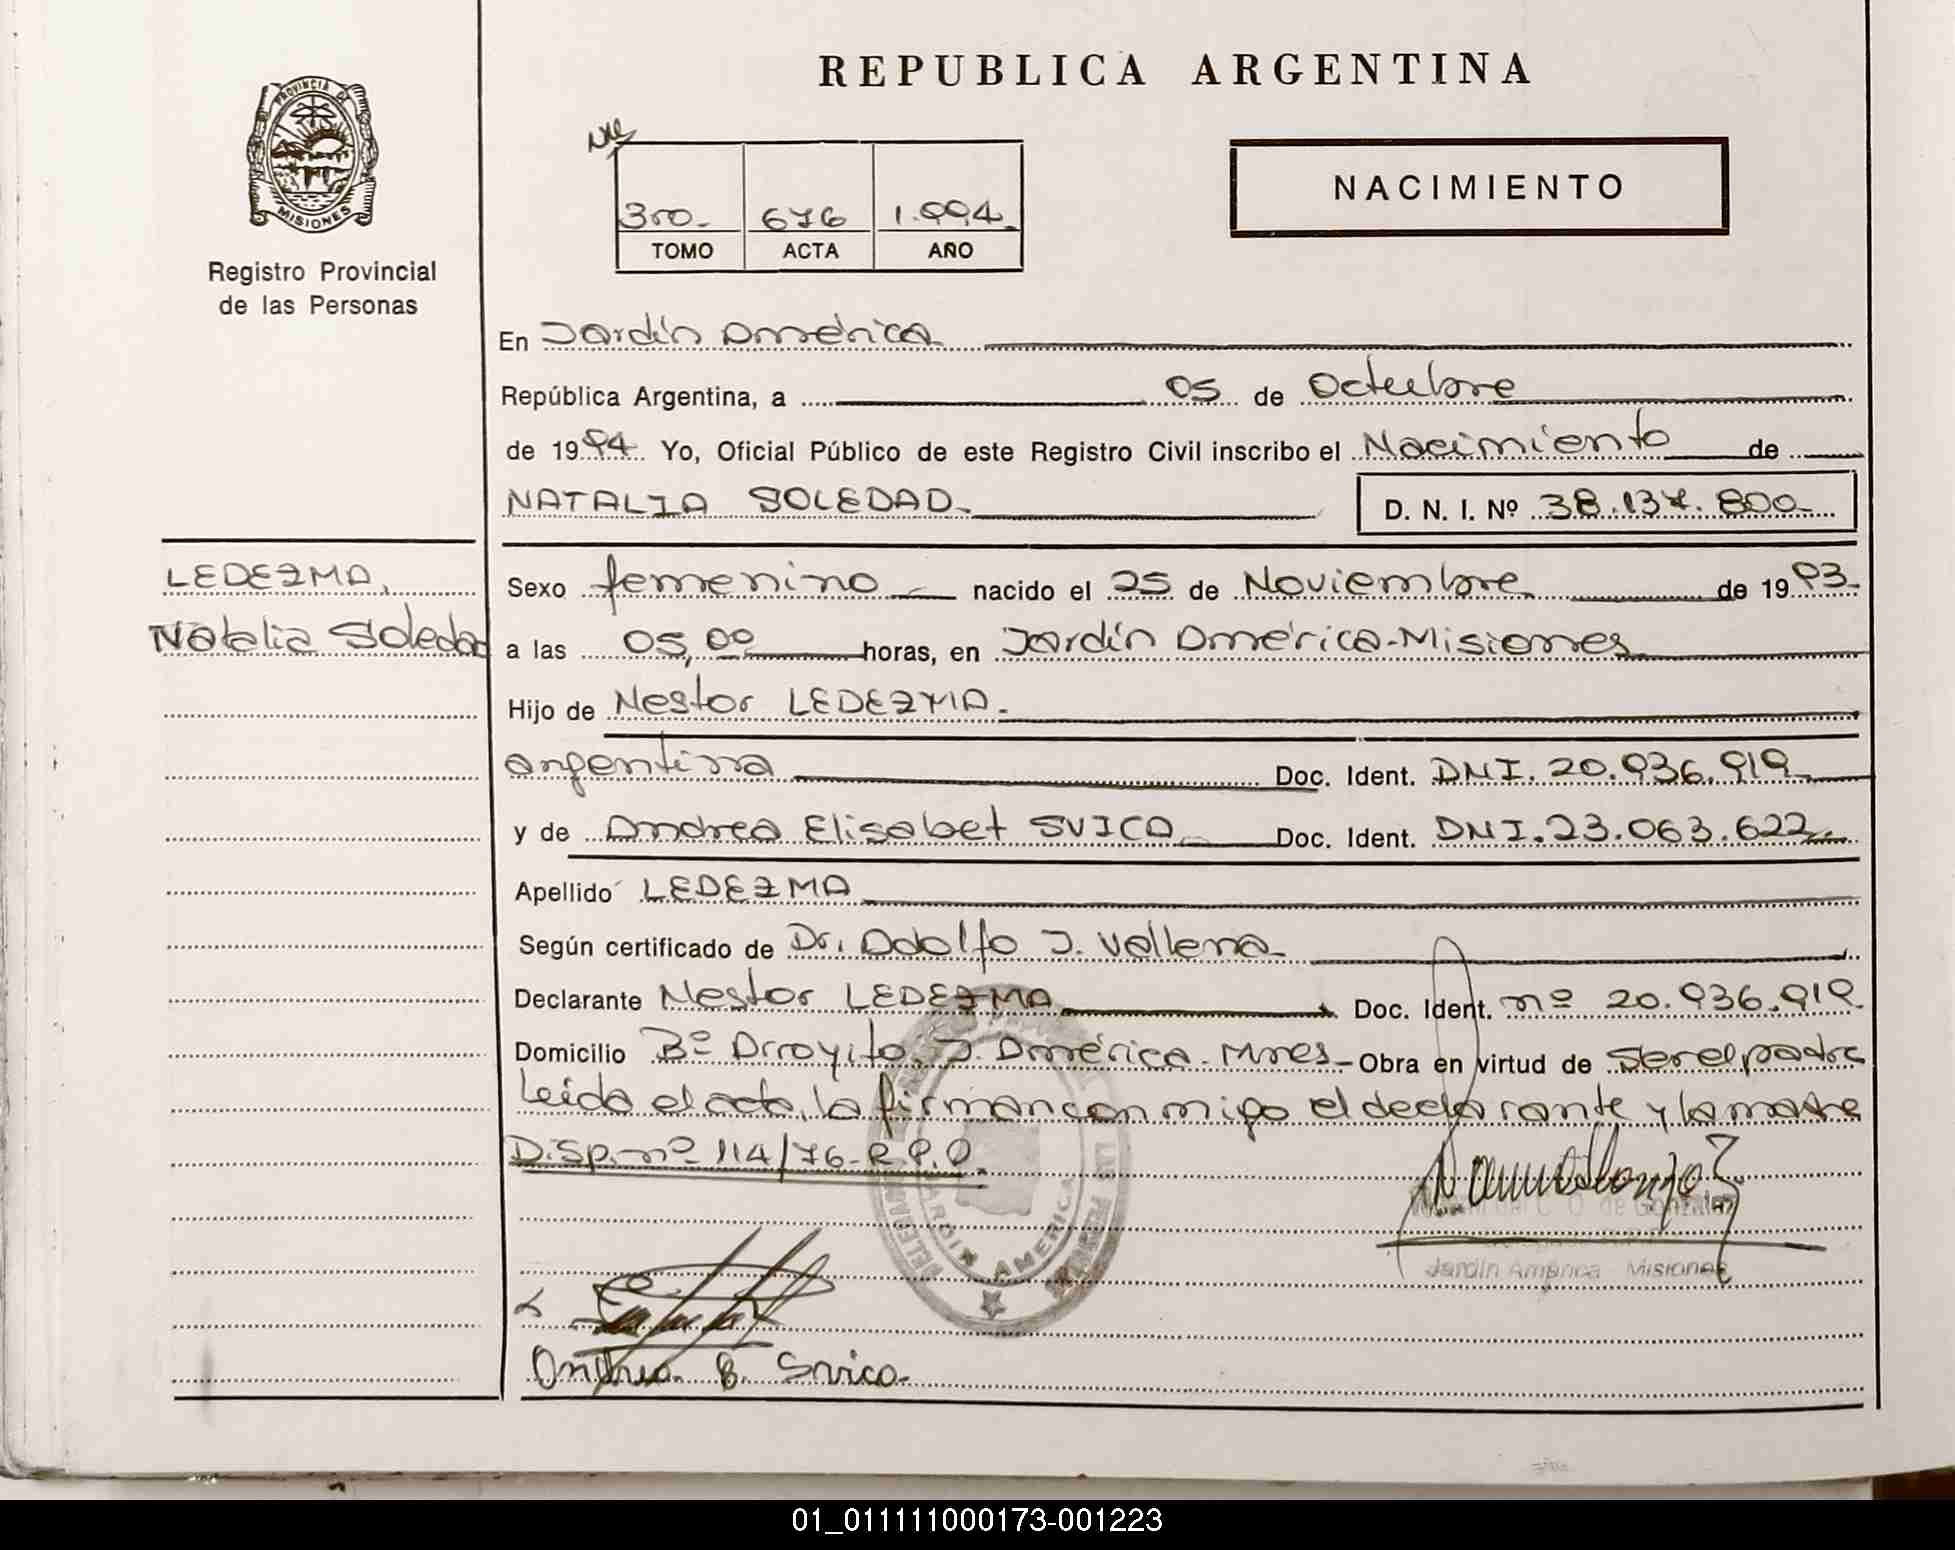 REPUBLICA ARGENTINA
PROVINCIA DE
MISIONES
Registro Provincial
de las Personas
3ro. 676 1.994.
TOMO ACTA AÑO
NACIMIENTO
En Jardín América
República Argentina, a 05 de Octubre
de 1994 Yo, Oficial Público de este Registro Civil inscribo el Nacimiento de
NATALIA SOLEDAD.
D. N. I. Nº 38.137.800
LEDEZMA,
Natalia Soledad
Sexo femenino nacido el 25 de Noviembre de 1993.
a las 05,00 horas, en Jardín América-Misiones
Hijo de Nestor LEDEZMA.
argentina Doc. Ident. DNI. 20.936.919
y de Andrea Elisabet SVICA Doc. Ident. DNI.23.063.622
Apellido LEDEZMA
Según certificado de Dr. Adolfo J. Vallena
Declarante Nestor LEDEZMA Doc. Ident. nº 20.936.919
Domicilio Bº Arroyito, J. América. Mnes Obra en virtud de ser el padre
Leída el acta, la firman conmigo el declarante y la madre
Disp. nº 114/76-R.P.P.
JARDIN AMERICA
Jardín América Misiones
Andrea E. Svica
01_011111000173-001223